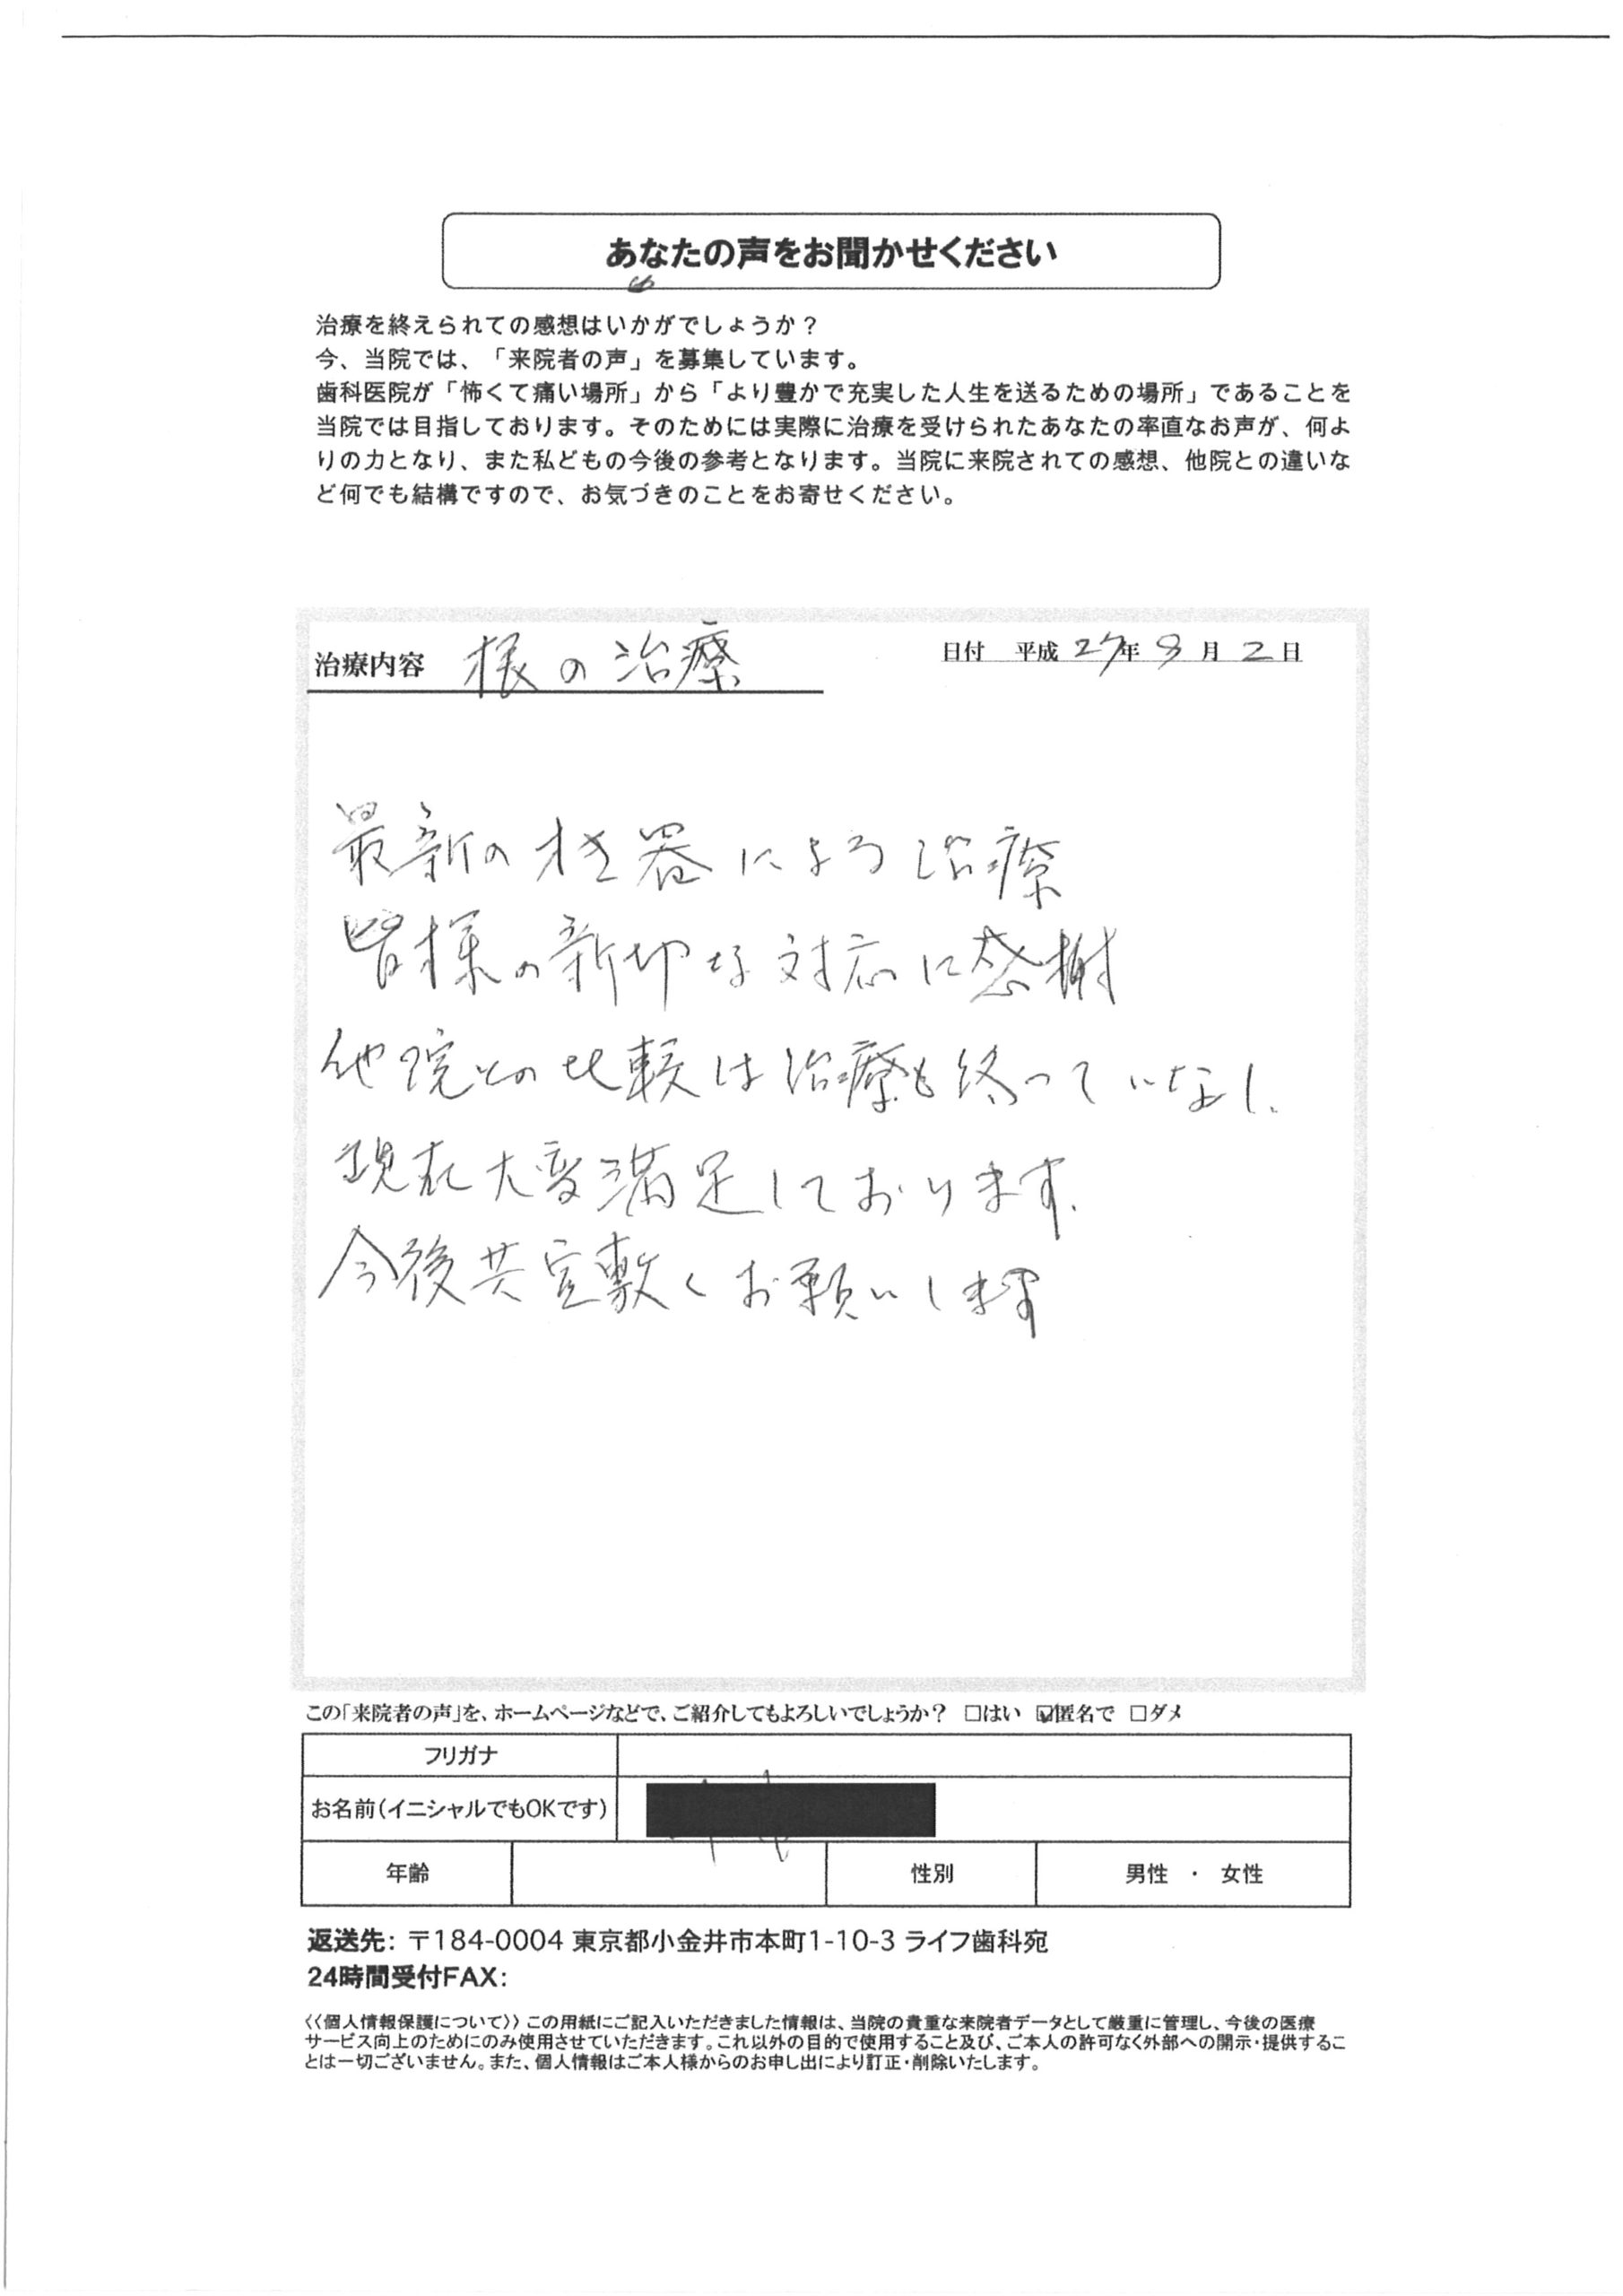 あなたの声をお聞かせください
治療を終えられての感想はいかがでしょうか？
今、当院では、「来院者の声」を募集しています。
歯科医院が「怖くて痛い場所」から「より豊かで充実した人生を送るための場所」であることを
当院では目指しております。そのためには実際に治療を受けられたあなたの率直なお声が、何よ
りの力となり、また私どもの今後の参考となります。当院に来院されての感想、他院との違いな
ど何でも結構ですので、お気づきのことをお寄せください。
治療内容 根の治療 日付 平成27年8月2日
最新の機器による治療
皆様の親切な対応に感謝
他院との比較は治療も終っていなし、
現在大変満足しております。
今後共宜敷くお願いします
この「来院者の声」を、ホームページなどで、ご紹介してもよろしいでしょうか？ □はい ☑匿名で □ダメ
フリガナ
お名前（イニシャルでもOKです）
年齢 性別 男性 ・ 女性
返送先：〒184-0004 東京都小金井市本町1-10-3 ライフ歯科宛
24時間受付FAX：
〈〈個人情報保護について〉〉この用紙にご記入いただきました情報は、当院の貴重な来院者データとして厳重に管理し、今後の医療
サービス向上のためにのみ使用させていただきます。これ以外の目的で使用すること及び、ご本人の許可なく外部への開示・提供するこ
とは一切ございません。また、個人情報はご本人様からのお申し出により訂正・削除いたします。